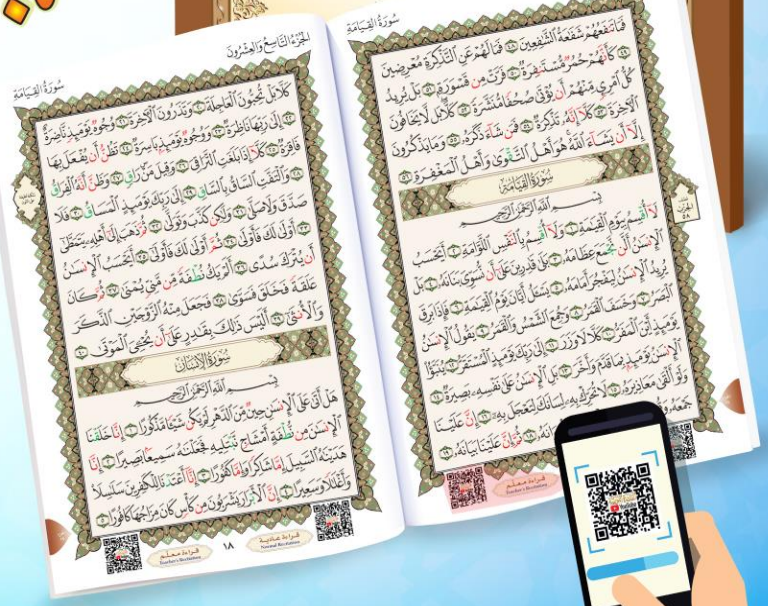 سُورَةُ القِيَامَةِ
فَمَا تَنفَعُهُمْ شَفَٰعَةُ ٱلشَّٰفِعِينَ ٤٨ فَمَا لَهُمْ عَنِ ٱلتَّذْكِرَةِ مُعْرِضِينَ
٤٩ كَأَنَّهُمْ حُمُرٌ مُّسْتَنفِرَةٌ ٥٠ فَرَّتْ مِن قَسْوَرَةٍ ٥١ بَلْ يُرِيدُ
كُلُّ ٱمْرِئٍ مِّنْهُمْ أَن يُؤْتَىٰ صُحُفًا مُّنَشَّرَةً ٥٢ كَلَّا بَل لَّا يَخَافُونَ
ٱلْءَاخِرَةَ ٥٣ كَلَّا إِنَّهُۥ تَذْكِرَةٌ ٥٤ فَمَن شَآءَ ذَكَرَهُۥ ٥٥ وَمَا يَذْكُرُونَ
إِلَّا أَن يَشَآءَ ٱللَّهُ هُوَ أَهْلُ ٱلتَّقْوَىٰ وَأَهْلُ ٱلْمَغْفِرَةِ ٥٦
سُورَةُ القِيَامَةِ
بِسْمِ ٱللَّهِ ٱلرَّحْمَٰنِ ٱلرَّحِيمِ
لَآ أُقْسِمُ بِيَوْمِ ٱلْقِيَٰمَةِ ١ وَلَآ أُقْسِمُ بِٱلنَّفْسِ ٱللَّوَّامَةِ ٢ أَيَحْسَبُ
ٱلْإِنسَٰنُ أَلَّن نَّجْمَعَ عِظَامَهُۥ ٣ بَلَىٰ قَٰدِرِينَ عَلَىٰٓ أَن نُّسَوِّيَ بَنَانَهُۥ ٤ بَلْ
يُرِيدُ ٱلْإِنسَٰنُ لِيَفْجُرَ أَمَامَهُۥ ٥ يَسْـَٔلُ أَيَّانَ يَوْمُ ٱلْقِيَٰمَةِ ٦ فَإِذَا بَرِقَ
ٱلْبَصَرُ ٧ وَخَسَفَ ٱلْقَمَرُ ٨ وَجُمِعَ ٱلشَّمْسُ وَٱلْقَمَرُ ٩ يَقُولُ ٱلْإِنسَٰنُ
يَوْمَئِذٍ أَيْنَ ٱلْمَفَرُّ ١٠ كَلَّا لَا وَزَرَ ١١ إِلَىٰ رَبِّكَ يَوْمَئِذٍ ٱلْمُسْتَقَرُّ ١٢ يُنَبَّؤُا۟
ٱلْإِنسَٰنُ يَوْمَئِذٍۭ بِمَا قَدَّمَ وَأَخَّرَ ١٣ بَلِ ٱلْإِنسَٰنُ عَلَىٰ نَفْسِهِۦ بَصِيرَةٌ ١٤
وَلَوْ أَلْقَىٰ مَعَاذِيرَهُۥ ١٥ لَا تُحَرِّكْ بِهِۦ لِسَانَكَ لِتَعْجَلَ بِهِۦٓ ١٦ إِنَّ عَلَيْنَا
جَمْعَهُۥ ١٨ ثُمَّ إِنَّ عَلَيْنَا بَيَانَهُۥ ١٩
قراءة معلم
Teacher's Recitation
الجُزْءُ التَّاسِعُ وَالعِشْرُونَ
سُورَةُ القِيَامَةِ
كَلَّا بَلْ تُحِبُّونَ ٱلْعَاجِلَةَ ٢٠ وَتَذَرُونَ ٱلْءَاخِرَةَ ٢١ وُجُوهٌ يَوْمَئِذٍ نَّاضِرَةٌ
٢٢ إِلَىٰ رَبِّهَا نَاظِرَةٌ ٢٣ وَوُجُوهٌ يَوْمَئِذٍۭ بَاسِرَةٌ ٢٤ تَظُنُّ أَن يُفْعَلَ بِهَا
فَاقِرَةٌ ٢٥ كَلَّآ إِذَا بَلَغَتِ ٱلتَّرَاقِيَ ٢٦ وَقِيلَ مَنْ رَاقٍ ٢٧ وَظَنَّ أَنَّهُ ٱلْفِرَاقُ
٢٨ وَٱلْتَفَّتِ ٱلسَّاقُ بِٱلسَّاقِ ٢٩ إِلَىٰ رَبِّكَ يَوْمَئِذٍ ٱلْمَسَاقُ ٣٠ فَلَا
صَدَّقَ وَلَا صَلَّىٰ ٣١ وَلَٰكِن كَذَّبَ وَتَوَلَّىٰ ٣٢ ثُمَّ ذَهَبَ إِلَىٰٓ أَهْلِهِۦ يَتَمَطَّىٰٓ
٣٣ أَوْلَىٰ لَكَ فَأَوْلَىٰ ٣٤ ثُمَّ أَوْلَىٰ لَكَ فَأَوْلَىٰٓ ٣٥ أَيَحْسَبُ ٱلْإِنسَٰنُ
أَن يُتْرَكَ سُدًى ٣٦ أَلَمْ يَكُ نُطْفَةً مِّن مَّنِيٍّ يُمْنَىٰ ٣٧ ثُمَّ كَانَ
عَلَقَةً فَخَلَقَ فَسَوَّىٰ ٣٨ فَجَعَلَ مِنْهُ ٱلزَّوْجَيْنِ ٱلذَّكَرَ
وَٱلْأُنثَىٰٓ ٣٩ أَلَيْسَ ذَٰلِكَ بِقَٰدِرٍ عَلَىٰٓ أَن يُحْۦِيَ ٱلْمَوْتَىٰ ٤٠
سُورَةُ الإِنسَانِ
بِسْمِ ٱللَّهِ ٱلرَّحْمَٰنِ ٱلرَّحِيمِ
هَلْ أَتَىٰ عَلَى ٱلْإِنسَٰنِ حِينٌ مِّنَ ٱلدَّهْرِ لَمْ يَكُن شَيْـًٔا مَّذْكُورًا ١ إِنَّا خَلَقْنَا
ٱلْإِنسَٰنَ مِن نُّطْفَةٍ أَمْشَاجٍ نَّبْتَلِيهِ فَجَعَلْنَٰهُ سَمِيعًۢا بَصِيرًا ٢ إِنَّا
هَدَيْنَٰهُ ٱلسَّبِيلَ إِمَّا شَاكِرًا وَإِمَّا كَفُورًا ٣ إِنَّآ أَعْتَدْنَا لِلْكَٰفِرِينَ سَلَٰسِلَا۟
وَأَغْلَٰلًا وَسَعِيرًا ٤ إِنَّ ٱلْأَبْرَارَ يَشْرَبُونَ مِن كَأْسٍ كَانَ مِزَاجُهَا كَافُورًا ٥
قراءة عادية
Normal Recitation
١٨
قراءة معلم
Teacher's Recitation
YouTube